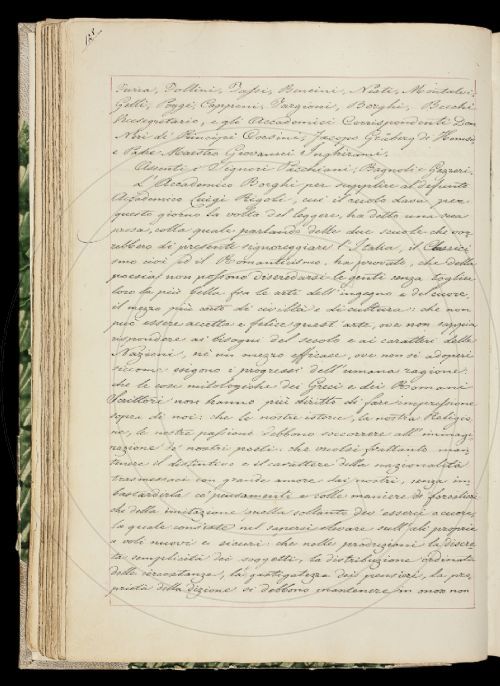 Furia, Pollini, Tassi, Bencini, Nesti, Montalvi,
Gelli, Poggi, Capponi, Targioni, Borghi, Becchi
Prosegretario, e gli Accademici Corrispondenti Don
Neri de' Principi Corsini, Jacopo Gräberg de Hemsö,
e Padre Maestro Giovanni Inghirami.
Assenti i Signori Bagnoli e
L'Accademico Borghi per supplire al defunto
Accademico Luigi Rigoli, cui il ruolo dava per
questo giorno la volta del leggere, ha detto una sua
prosa, colla quale parlando delle due scuole che vor-
rebbero di presente signoreggiare l'Italia, il Classici-
smo cioè ed il Romanticismo, ha provato, che della
poesia non possono diseredarsi le genti senza togliere
loro la più bella fra le arti dell'ingegno e del cuore,
il mezzo più certo di civiltà e di cultura: che non
può essere accetta e felice quest'arte, ove non sappia
rispondere ai bisogni del secolo e ai caratteri delle
Nazioni, nè un mezzo efficace, ove non si adoperi
siccome esigono i progressi dell'umana ragione:
che le cose mitologiche dei Greci e dei Romani
Scrittori non hanno più diritto di fare impressione
sopra di noi: che le nostre istorie, la nostra Religio-
ne, le nostre passioni debbono soccorrere all'immagi-
nazione de' nostri poeti: che vuolsi frattanto man-
tenere il distintivo e il carattere della nazionalità
trasmessaci con grande amore dai nostri, senza im-
bastardirla co' pensamenti e colle maniere de' forestieri:
che della imitazione quella soltanto dev'esserci a cuore,
la quale consiste nel sapersi elevare sull'ali proprie
a voli nuovi e sicuri: che nelle produzioni la discre-
ta semplicità dei soggetti, la distribuzione ordinata
delle circostanze, la gastigatezza dei pensieri, la pro-
prietà della dizione si debbono mantenere in onor non